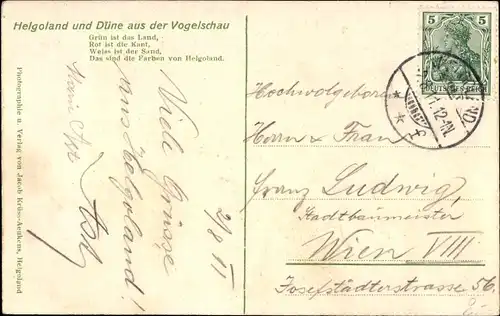 Helgoland und Düne aus der Vogelschau
Grün ist das Land,
Rot ist die Kant,
Weiss ist der Sand,
Das sind die Farben von Helgoland.
Photographie u. Verlag von Jacob Krüss-Aeukens, Helgoland
21/8 11
Viele Grüsse
aus Helgoland!
5 5
DEUTSCHES REICH
12-1N
Hochwolgeboren
Herrn & Frau
Franz Ludwig,
Stadtbaumeister
Wien VIII
Josefstädterstrasse 56.